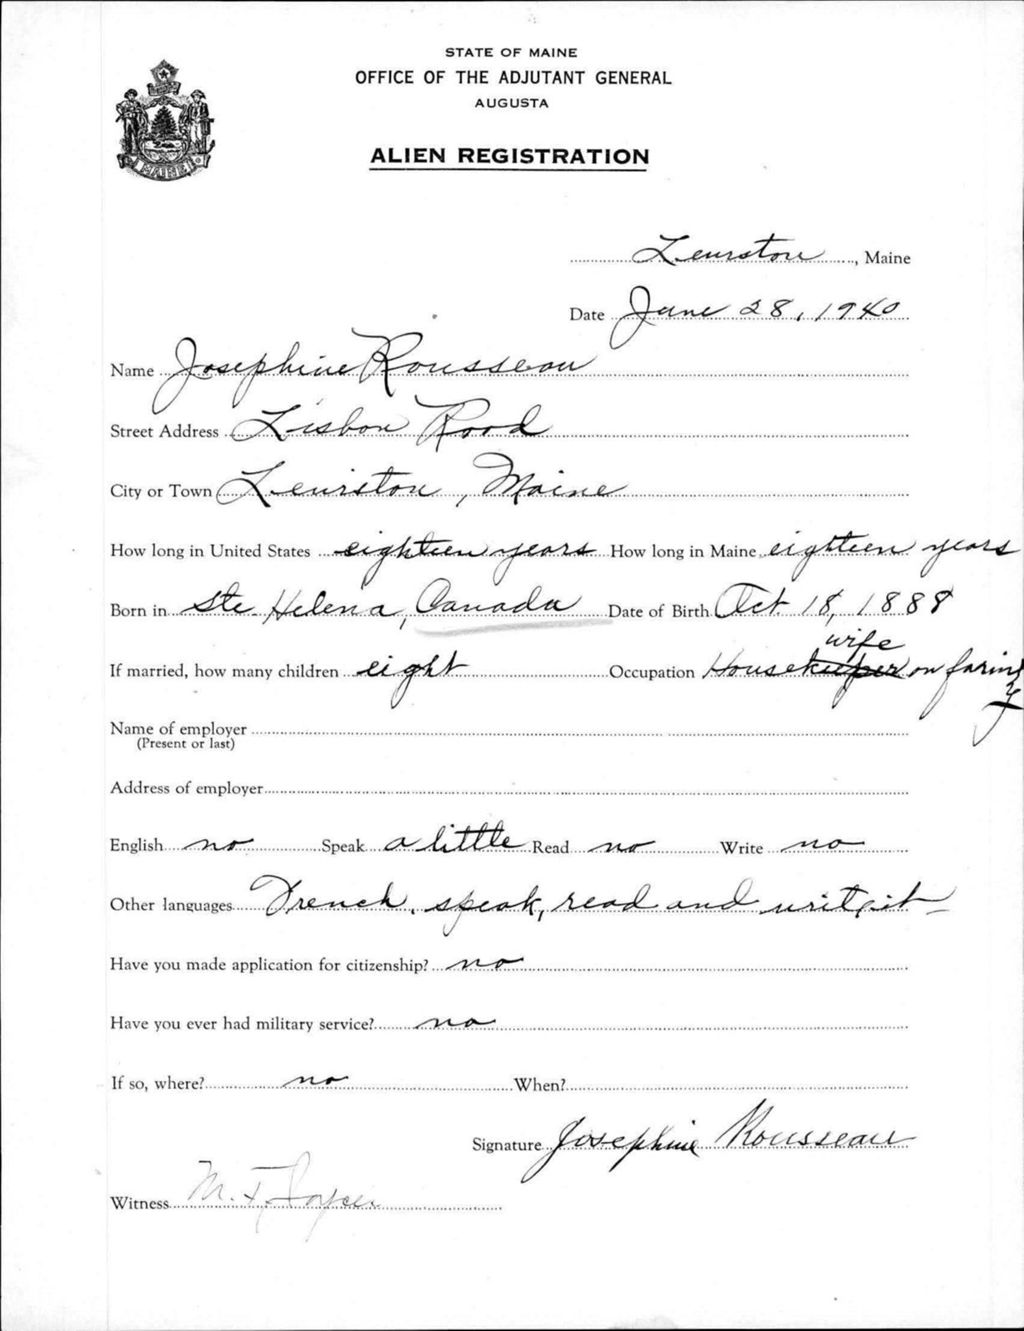 STATE OF MAINE
OFFICE OF THE ADJUTANT GENERAL
AUGUSTA
ALIEN REGISTRATION
MAINE
Lewiston, Maine
Date June 28, 1940
Name Josephine Rousseau
Street Address Lisbon Road
City or Town Lewiston, Maine
How long in United States eighteen years How long in Maine eighteen years
Born in Ste Helena, Canada Date of Birth Oct 18, 1888
wife
If married, how many children eight Occupation Housekeeper on farm
Name of employer
(Present or last)
Address of employer
English no Speak a little Read no Write no
Other languages French, speak, read and write it
Have you made application for citizenship? no
Have you ever had military service? no
If so, where? no When?
Signature Josephine Rousseau
Witness M. F.